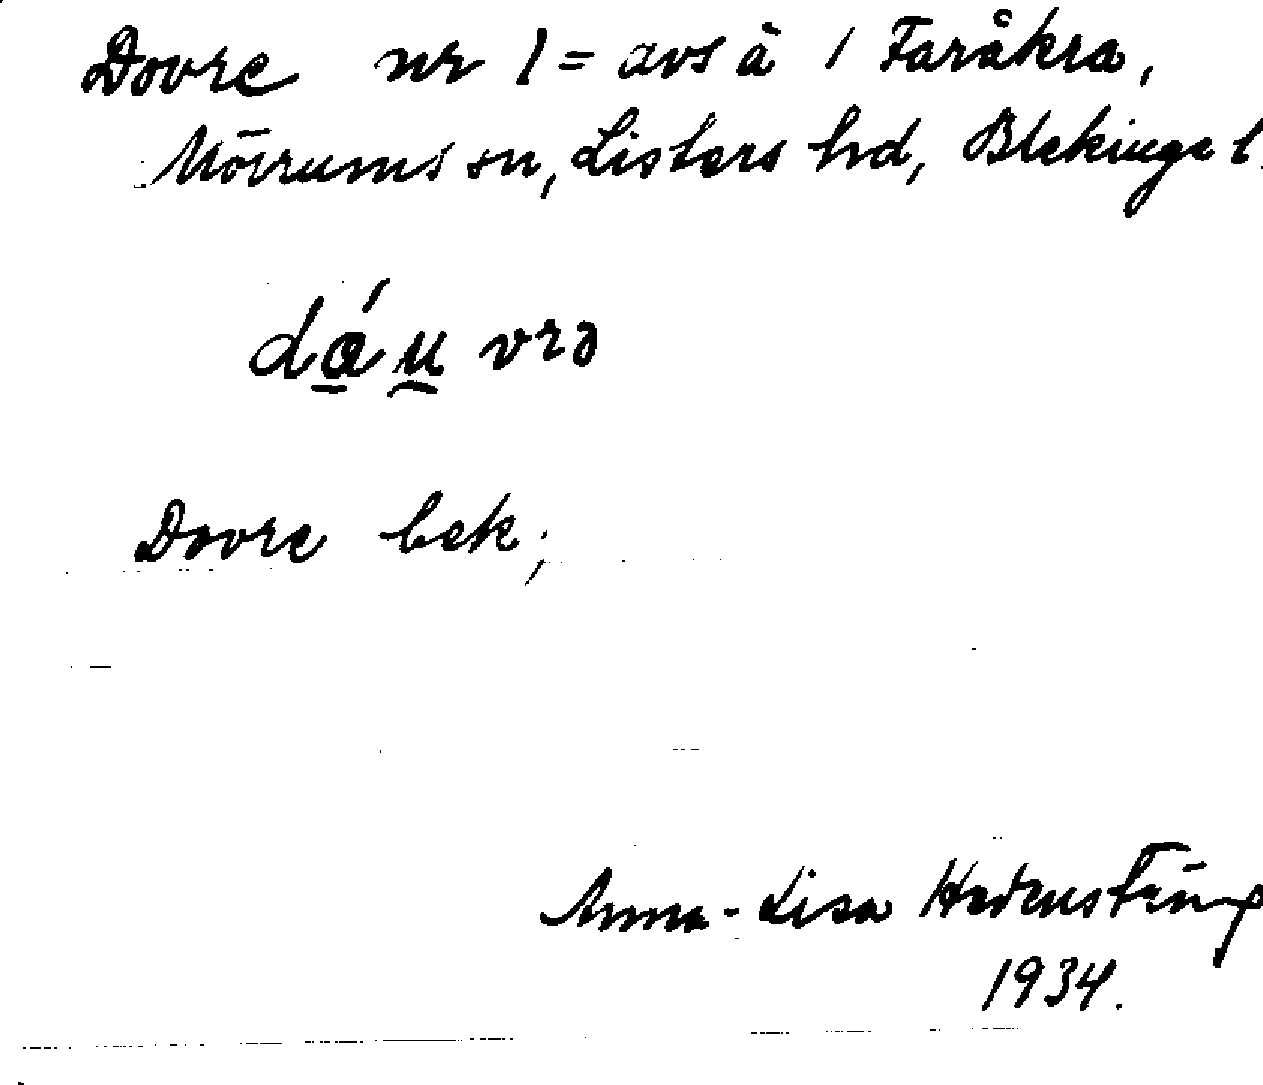 Dovre nr 1 = avs à 1 Faråkra,
Mörrums sn, Listers hd, Blekinge l.
dá̱u̯vrə
Dovre bek;
Anna-Lisa Hedenström
1934.